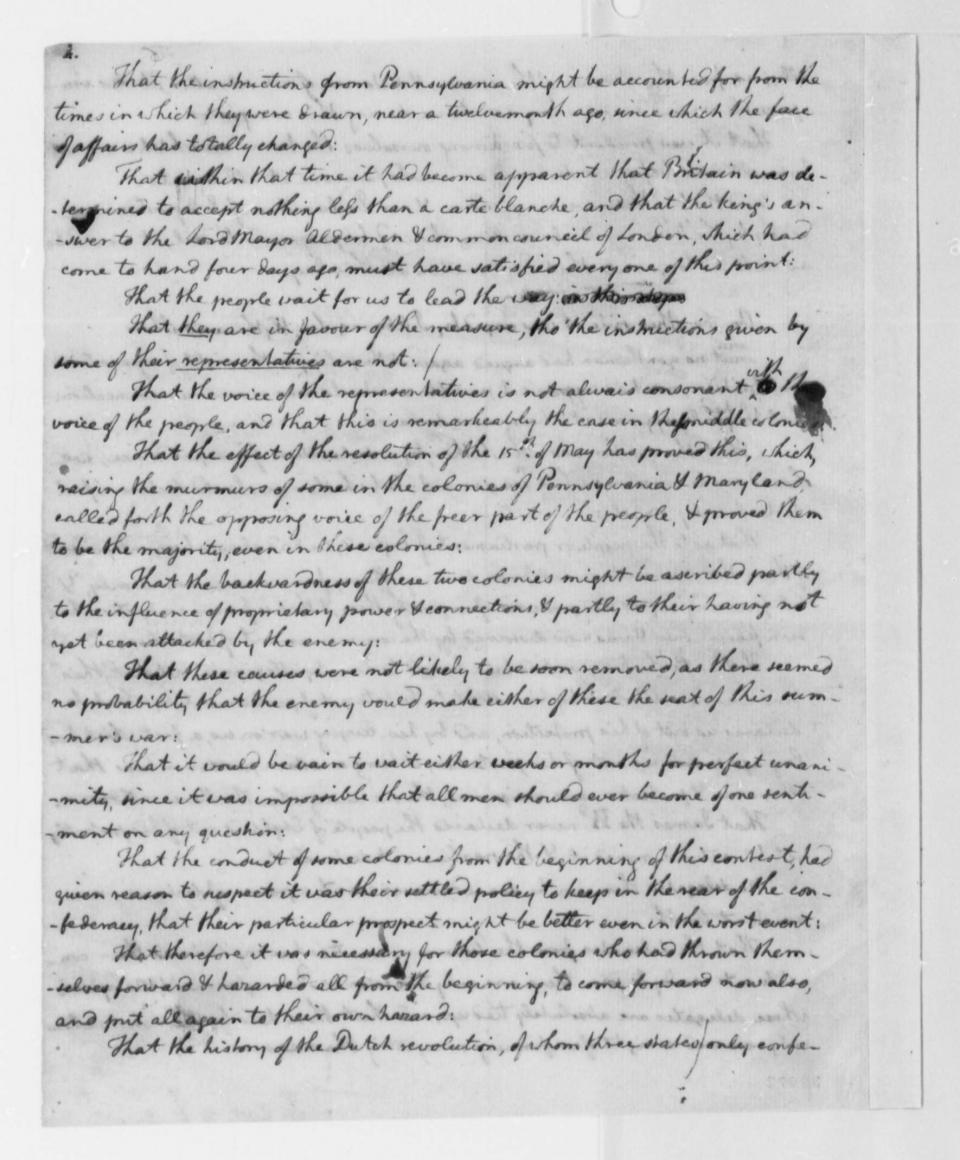 4.
That the instructions from Pennsylvania might be accounted for from the
times in which they were drawn, near a twelvemonth ago, since which the face
of affairs has totally changed:
That within that time it had become apparent that Britain was de-
-termined to accept nothing less than a carte blanche, and that the king's an-
-swer to the Lord Mayor Aldermen & common council of London, which had
come to hand four days ago, must have satisfied every one of this point:
That the people wait for us to lead the way:
That they are in favour of the measure, tho' the instructions given by
some of their representatives are not:
That the voice of the representatives is not alwais consonant with the
voice of the people, and that this is remarkeably the case in these middle colonies:
That the effect of the resolution of the 15th. of May has proved this, which,
raising the murmurs of some in the colonies of Pennsylvania & Maryland,
called forth the opposing voice of the freer part of the people, & proved them
to be the majority, even in these colonies:
That the backwardness of these two colonies might be ascribed partly
to the influence of proprietary power & connections, & partly to their having not
yet been attacked by the enemy:
That these causes were not likely to be soon removed, as there seemed
no probability that the enemy would make either of these the seat of this sum-
-mer's war:
That it would be vain to wait either weeks or months for perfect unani-
-mity, since it was impossible that all men should ever become of one senti-
-ment on any question:
That the conduct of some colonies from the beginning of this contest, had
given reason to suspect it was their settled policy to keep in the rear of the con-
-federacy, that their particular prospect might be better even in the worst event:
That therefore it was necessary for those colonies who had thrown them-
-selves forward & hazarded all from the beginning, to come forward now also,
and put all again to their own hazard:
That the history of the Dutch revolution, of whom three states only confe-